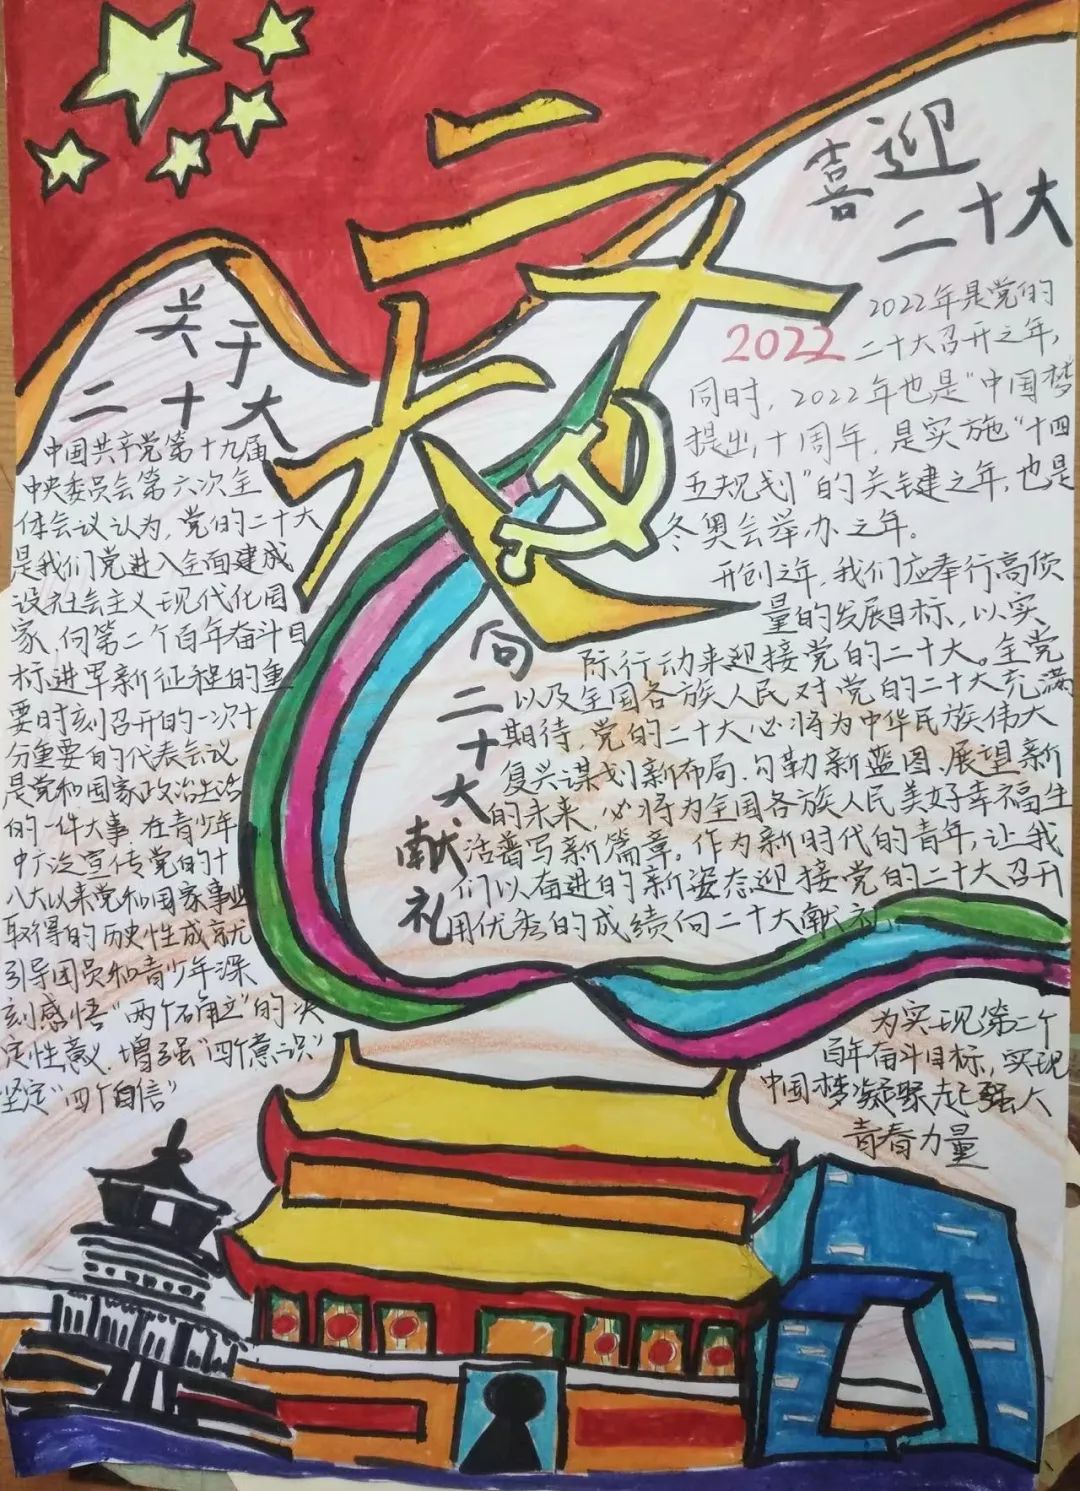 二十大
喜迎
二十大
关于
二十大
中国共产党第十九届
中央委员会第六次全
体会议认为,党的二十大
是我们党进入全面建成
设社会主义现代化国
家、向第二个百年奋斗目
标进军新征程的重
要时刻召开的一次十
分重要的代表会议
是党和国家政治生活
的一件大事 在青少年
中广泛宣传党的十
八大以来党和国家事业
取得的历史性成就
引导团员和青少年深
刻感悟“两个确立”的决
定性意义.增强“四个意识”
坚定“四个自信”
2022
2022年是党的
二十大召开之年,
同时,2022年也是“中国梦
提出十周年,是实施“十四
五规划”的关键之年,也是
冬奥会举办之年。
开创之年,我们应奉行高质
量的发展目标,以实
际行动来迎接党的二十大。全党
以及全国各族人民对党的二十大充满
期待,党的二十大必将为中华民族伟大
复兴谋划新布局、勾勒新蓝图、展望新
的未来,必将为全国各族人民美好幸福生
活谱写新篇章。作为新时代的青年,让我
们以奋进的新姿态迎接党的二十大召开
用优秀的成绩向二十大献礼
向二十大献礼
为实现第二个
百年奋斗目标,实现
中国梦凝聚起强大
青春力量